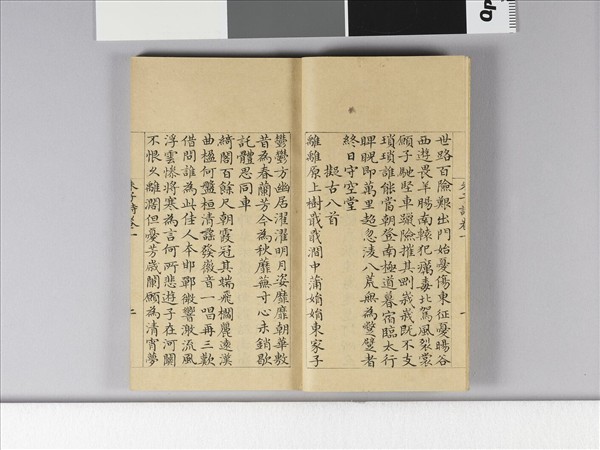 世路百險艱出門始憂傷東征憂暘谷
西遊畏羊腸南轅犯癘毒北駕風裂裳
願子馳堅車躐險摧其剛峩峩既不支
瑣瑣誰能當朝登南極道暮宿臨太行
睥睨即萬里超忽淩八荒無為蹩躠者
終日守空堂
擬古八首
離離原上樹戢戢澗中蒲娟娟東家子
鬱鬱方幽居濯濯明月姿靡靡朝華敷
昔為春蘭芳今為秋靡蕪寸心未銷歇
託體思同車
綺閣百餘尺朝霞冠其端飛櫩麗遠漢
曲楹何盤桓清謠發徽音一唱再三歎
借問誰為此佳人本邯鄲微響激流風
浮雲慘將寒為言何所悲遊子在河關
不恨久離濶但憂芳歲闌願為清宵夢
朱子詩卷一
朱子詩卷一
二